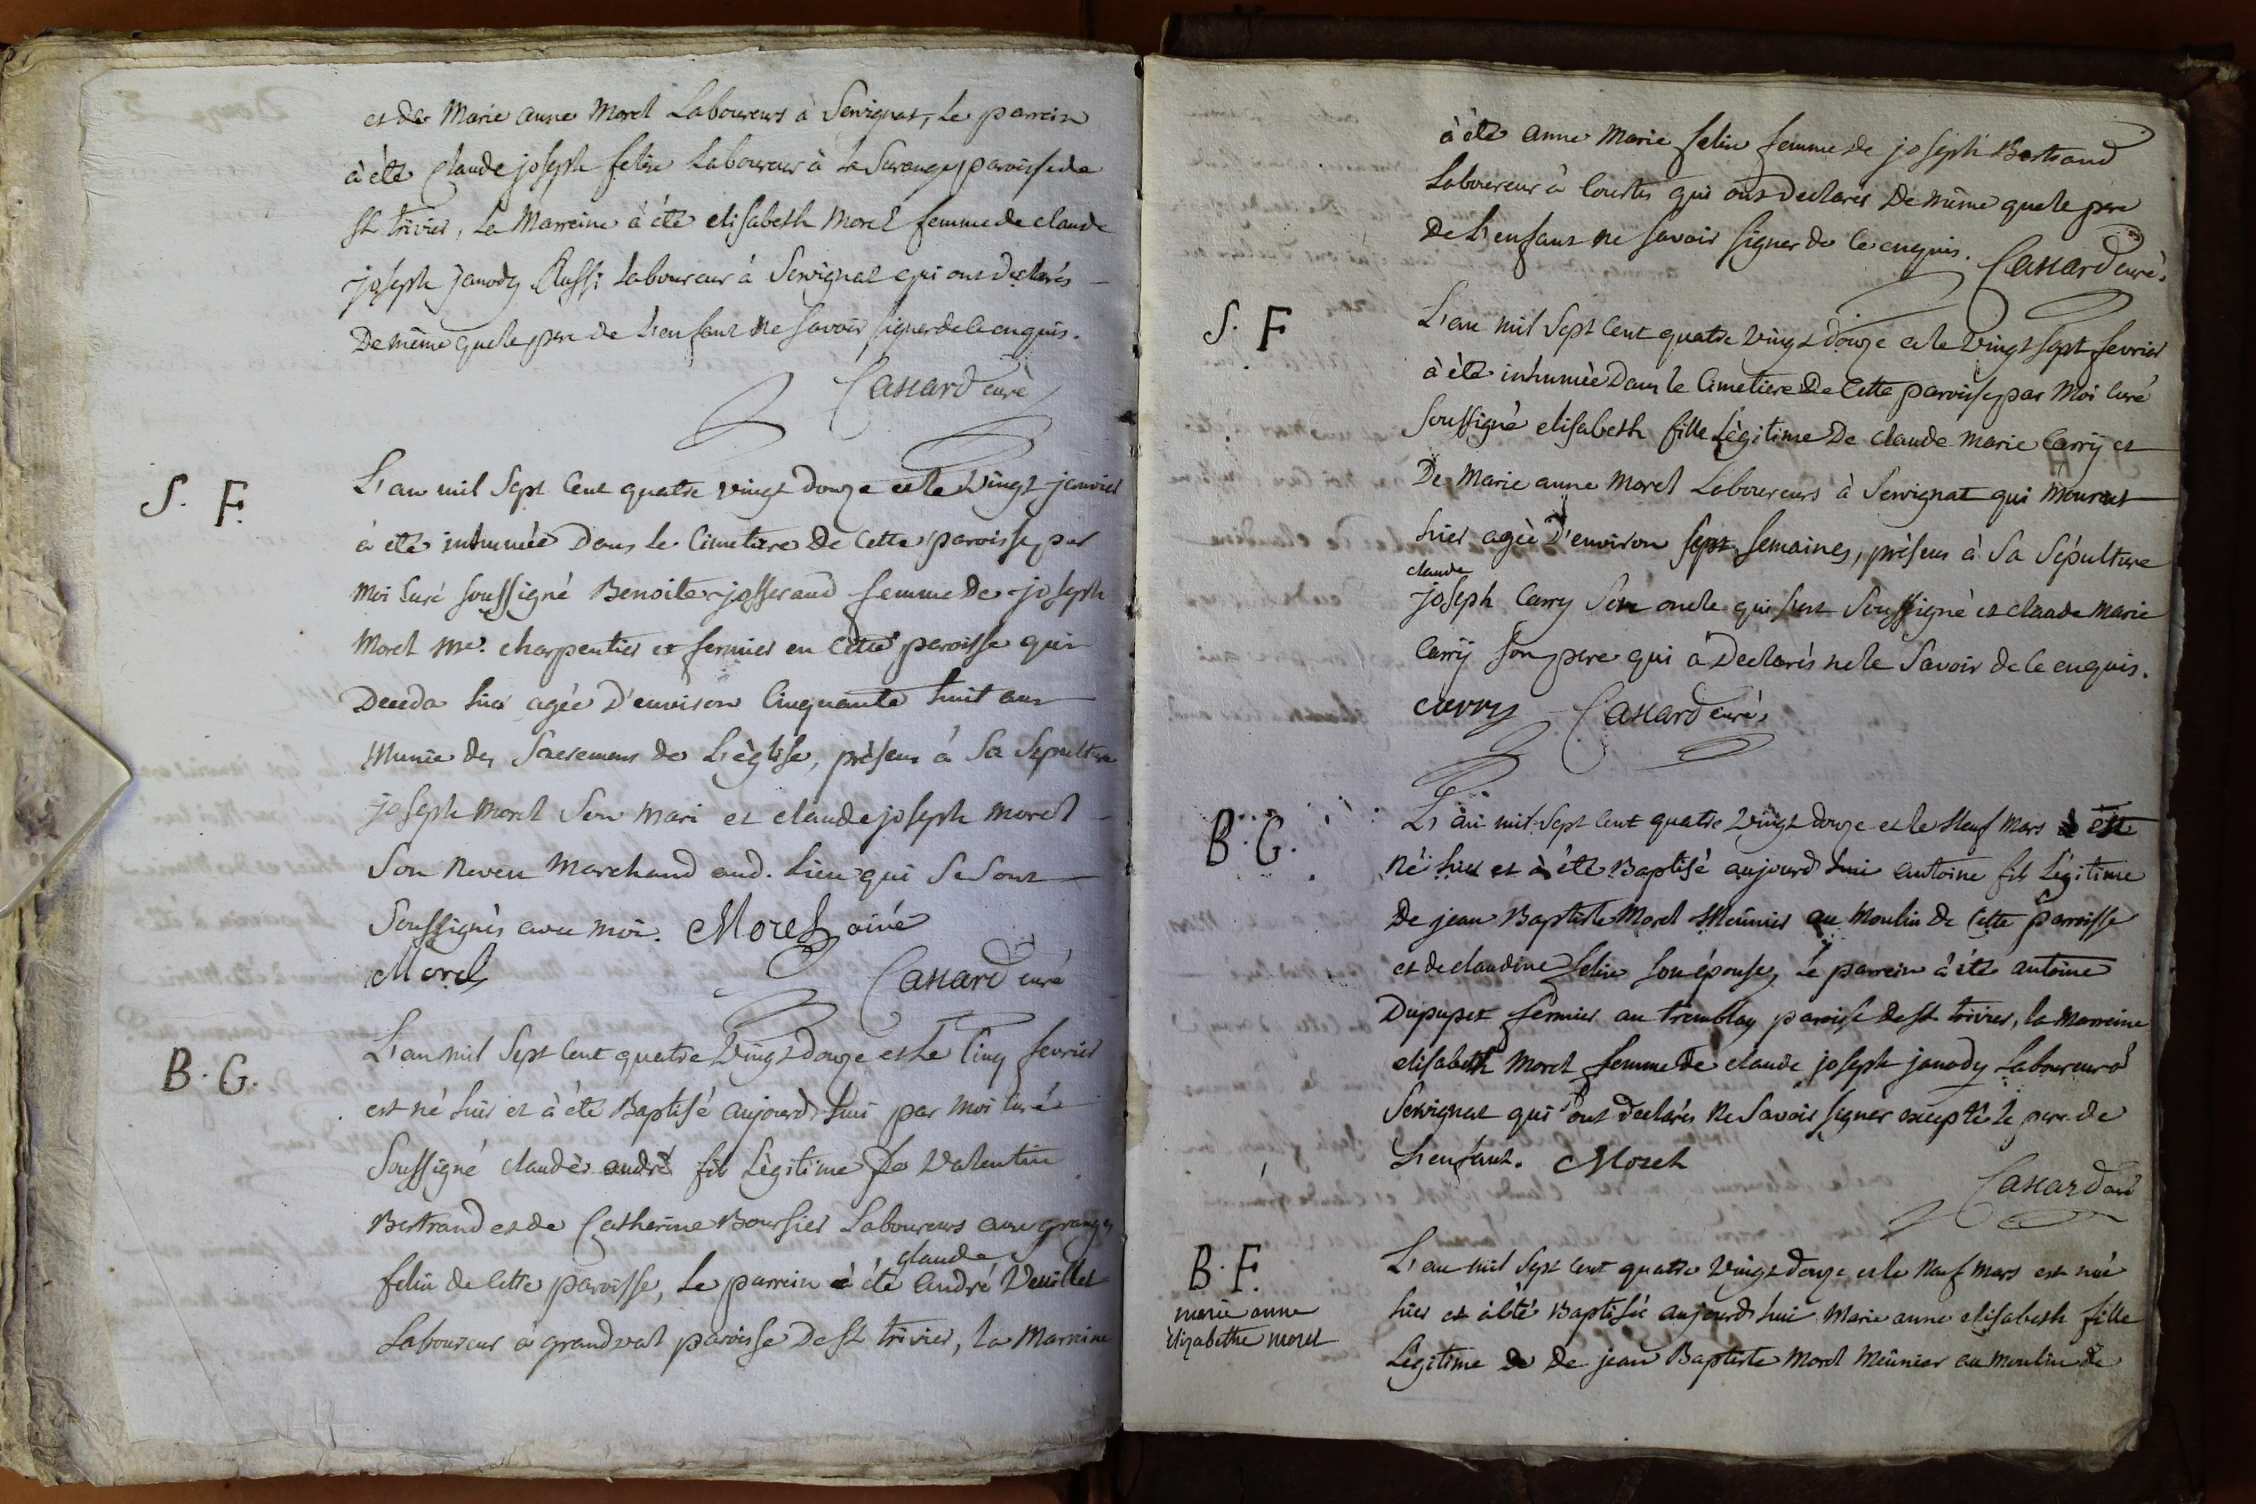 et de Marie anne Morel Laboureurs à Servignat, le parrein
à été Claude joseph felix Laboureur à La Surange paroisse de
St trivier, la Marreine à été elisabeth Morel femme de claude
joseph janody Aussi laboureur à Servignat qui ont declarés
De même que le pere de L'enfant ne savoir signer de ce enquis.
Canard curé
S. F.
L'an mil Sept Cent quatre vingt douze et le Vingt janvier
à été inhumée Dans le Cimetiere De Cette paroisse par
Moi Curé soussigné Benoite josserand femme De joseph
Morel me. charpentier et fermier en Cette paroisse qui
Deceda hier agée D'environ Cinquante huit ans
Munie des Sacremens de L'église, présens à Sa Sepulture
joseph Morel Son mari et claude joseph Morel
Son neveu Marchand aud. Lieu qui Se Sont
Soussignés avec moi. Morel ainé
Morel Canard curé
B. G.
L'an mil Sept Cent quatre Vingt douze et Le Cinq fevrier
est né hier et à été Baptisé aujourd'hui par moi Curé
Soussigné claude andré fils Légitime De Valentin
Bertrand et de Catherine Boursier Laboureurs aux granges
felix de Cette paroisse, Le parrein à été claude andré Veuillet
Laboureur à grandval paroisse De St trivier, la Marreine
à été anne Marie felix femme de joseph Bertrand
Laboureur à Courtes qui ont Declarés De même que le pere
De L'enfant ne savoir signer de ce enquis. Canard curé.
S. F
L'an mil Sept Cent quatre vingt douze et le Vingt sept fevrier
à été inhumée Dans le Cimetiere De Cette paroisse par Moi Curé
Soussigné elisabeth fille Légitime De claude marie Carrÿ et
De Marie anne Morel Laboureurs à Servignat qui mourut
hier agée D'environ sept Semaines, présens à Sa Sépulture
claude
joseph Carry Son oncle qui s'est Soussigné et claude marie
Carrÿ Son pere qui à Declarés ne le Savoir de ce enquis.
carry Canard curé.
B. G.
L'an mil Sept Cent quatre Vingt douze et le Neuf Mars est
né hier et à été Baptisé aujourd'hui antoine fils Légitime
De jean Baptiste Morel Meûnier au Moulin de Cette paroisse
et de claudine felix Son épouse, Le parrein à été antoine
Dupupet fermier au tremblay paroisse De St trivier, la Marreine
elisabeth Morel femme de claude joseph janody Laboureur à
Servignat qui ont declarés ne Savoir signer excepté le pere de
L'enfant. Morel
Canard curé
B. F.
marie anne
elizabethe morel
L'an mil Sept Cent quatre Vingt douze et le Neuf Mars est née
hier et à été Baptisée aujourd'hui Marie anne elisabeth fille
Légitime de De jean Baptiste Morel Meûnier au moulin de